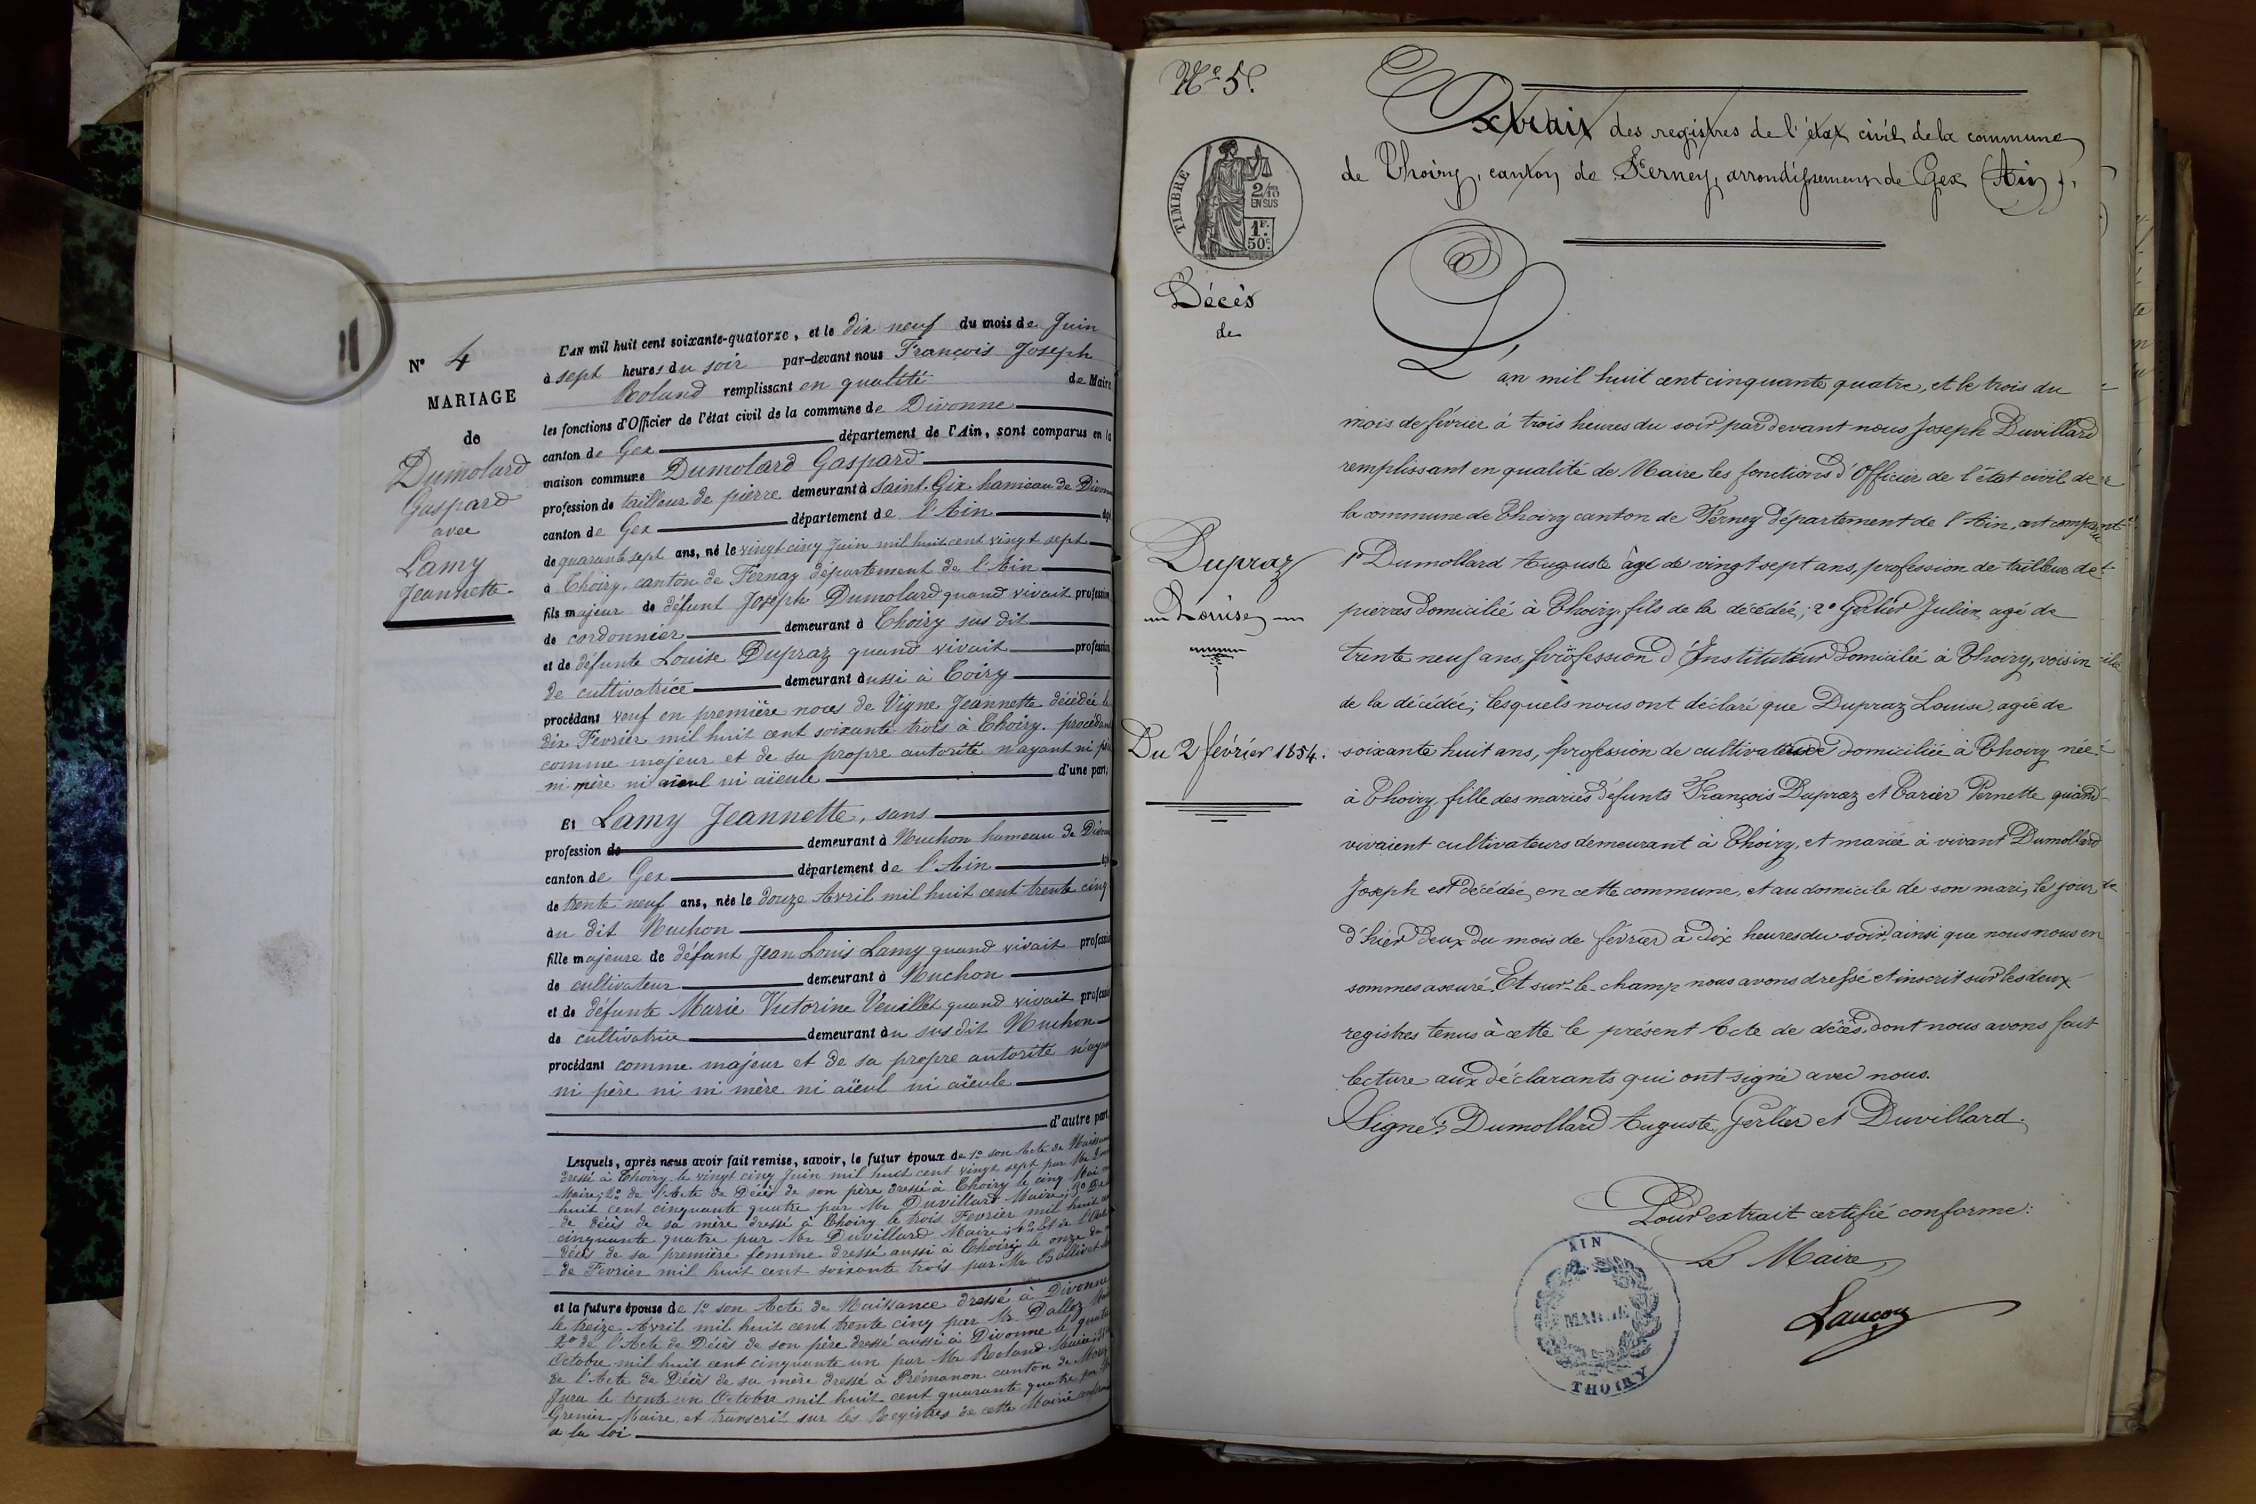 N° 4
MARIAGE
de
Dumolard
Gaspard
avec
Lamy
Jeannette
L'AN mil huit cent soixante-quatorze, et le dix neuf du mois de Juin
à sept heures du soir par-devant nous François Joseph
Roland remplissant en qualité de Maire
les fonctions d'Officier de l'état civil de la commune de Divonne
canton de Gex département de l'Ain, sont comparus en la
maison commune Dumolard Gaspard
profession de tailleur de pierre demeurant à Saint Gix hameau de
canton de Gex département de l'Ain
de quarante sept ans, né le vingt cinq Juin mil huit cent vingt sept
à Thoiry, canton de Fernay département de l'Ain
fils majeur de défunt Joseph Dumolard quand vivait profession
de cordonnier demeurant à Thoiry sus dit
et de défunte Louise Dupraz quand vivait profession
de cultivatrice demeurant aussi à Toiry
procédant veuf en première noces de Vigne Jeannette décédée le
dix Fevrier mil huit cent soixante trois à Thoiry. procédant
comme majeur et de sa propre autorité n'ayant ni
ni mère ni aïeul ni aïeule d'une part,
Et Lamy Jeannette, sans
profession de demeurant à Muchon hameau de
canton de Gex département de l'Ain
de trente neuf ans, née le douze Avril mil huit cent trente cinq
au dit Muchon
fille majeure de défunt Jean Louis Lamy quand vivait profession
de cultivateur demeurant à Muchon
et de défunte Marie Victorine Vuaillet quand vivait profession
de cultivatrice demeurant au sus dit Muchon
procédant comme majeur et de sa propre autorité n'ayant
ni père ni ni mère ni aïeul ni aïeule
d'autre part
Lesquels, après nous avoir fait remise, savoir, le futur époux de 1° son Acte de
dressé à Thoiry le vingt cinq Juin mil huit cent vingt sept par Mr
Maire; 2° de l'Acte de Décès de son père dressé à Thoiry le cinq Mai
huit cent cinquante quatre par Mr Duvillard Maire; 3° De
de décès de sa mère dressé à Thoiry le trois Fevrier mil huit
cinquante quatre par Mr Duvillard Maire; 4° Et de l'Acte
décès de sa première femme dressé aussi à Thoiry le onze
de Fevrier mil huit cent soixante trois par Mr
et la future épouse de 1° son Acte de Naissance dressé à Divonne
le treize Avril mil huit cent trente cinq par Mr Dalloz
2° de l'Acte de Décès de son père dressé aussi à Divonne le quatre
Octobre mil huit cent cinquante un par Mr Roland Maire
de l'Acte de Décès de sa mère dressé à Prémanon canton de
Jura le trente un Octobre mil huit cent quarante quatre
Grenier Maire et transcrit sur les Registres de cette Mairie
à la loi
N° 5.
TIMBRE
2/10
EN SUS
1F.
50c.
Décès
de
Dupraz
Louise
Du 2 février 1854.
Extrait des registres de l'état civil de la commune
de Thoiry, canton de Ferney, arrondissement de Gex (Ain).
L'an mil huit cent cinquante quatre, et le trois du
mois de février à trois heures du soir par devant nous Joseph Duvillard
remplissant en qualité de Maire les fonctions d'Officier de l'état civil de
la commune de Thoiry canton de Ferney département de l'Ain, ont
1° Dumollard Auguste âgé de vingt sept ans, profession de tailleur de
pierres domicilié à Thoiry, fils de la décédée; 2° Gerlier Julien agé de
trente neuf ans, profession d'Instituteur domicilié à Thoiry, voisin
de la décédée; lesquels nous ont déclaré que Dupraz Louise, agée de
soixante huit ans, profession de cultivateuse domiciliée à Thoiry née
à Thoiry, fille des mariés défunts François Dupraz et Pernette quand
vivaient cultivateurs demeurant à Thoiry, et mariée à vivant Dumollard
Joseph est décédée, en cette commune, et au domicile de son mari, le jour
d'hier deux du mois de février à dix heures du soir, ainsi que nous nous en
sommes assuré. Et sur-le-champ nous avons dressé et inscrit sur les deux
registres tenus à cette le présent Acte de décès, dont nous avons fait
lecture aux déclarants qui ont signé avec nous.
Signé: Dumollard Auguste, Gerlier et Duvillard.
Pour extrait certifié conforme:
Le Maire
AIN
MAIRIE
THOIRY